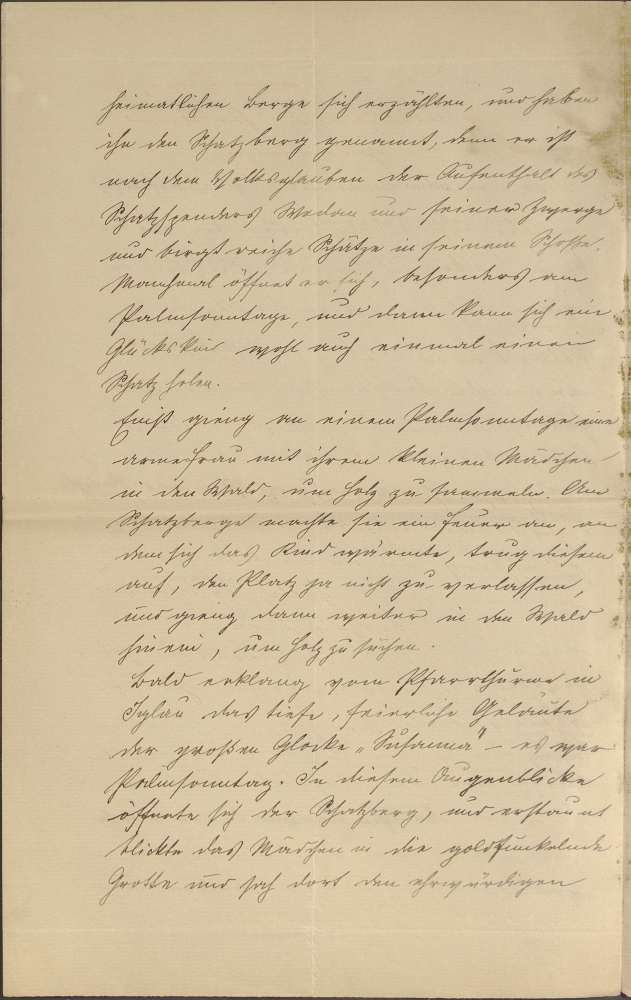 heimatlichen Berge sich erzählten, und haben
ihn den Schatzberg genannt, denn er ist
nach dem Volksglauben der Aufenthalt des
Schatzspenders Wodan und seiner Zwerge
und birgt reiche Schätze in seinem Schoße.
Manchmal öffnet er sich, besonders am
Palmsonntage, und dann kann sich ein
Glückskind wohl auch einmal einen
Schatz holen.
Einst gieng an einem Palmsonntage eine
arme Frau mit ihrem kleinen Mädchen
in den Wald, um Holz zu sammeln. Am
Schatzberge machte sie ein Feuer an, an
dem sich das Kind wärmte, trug diesem
auf, den Platz ja nicht zu verlassen,
und gieng dann weiter in den Wald
hinein, um Holz zu suchen.
Bald erklang vom Pfarrthurme in
Iglau das tiefe, feierliche Geläute
der großen Glocke „Susanna" – es war
Palmsonntag. In diesem Augenblicke
öffnete sich der Schatzberg, und erstaunt
blickte das Mädchen in die goldfunkelnde
Grotte und sah dort den ehrwürdigen